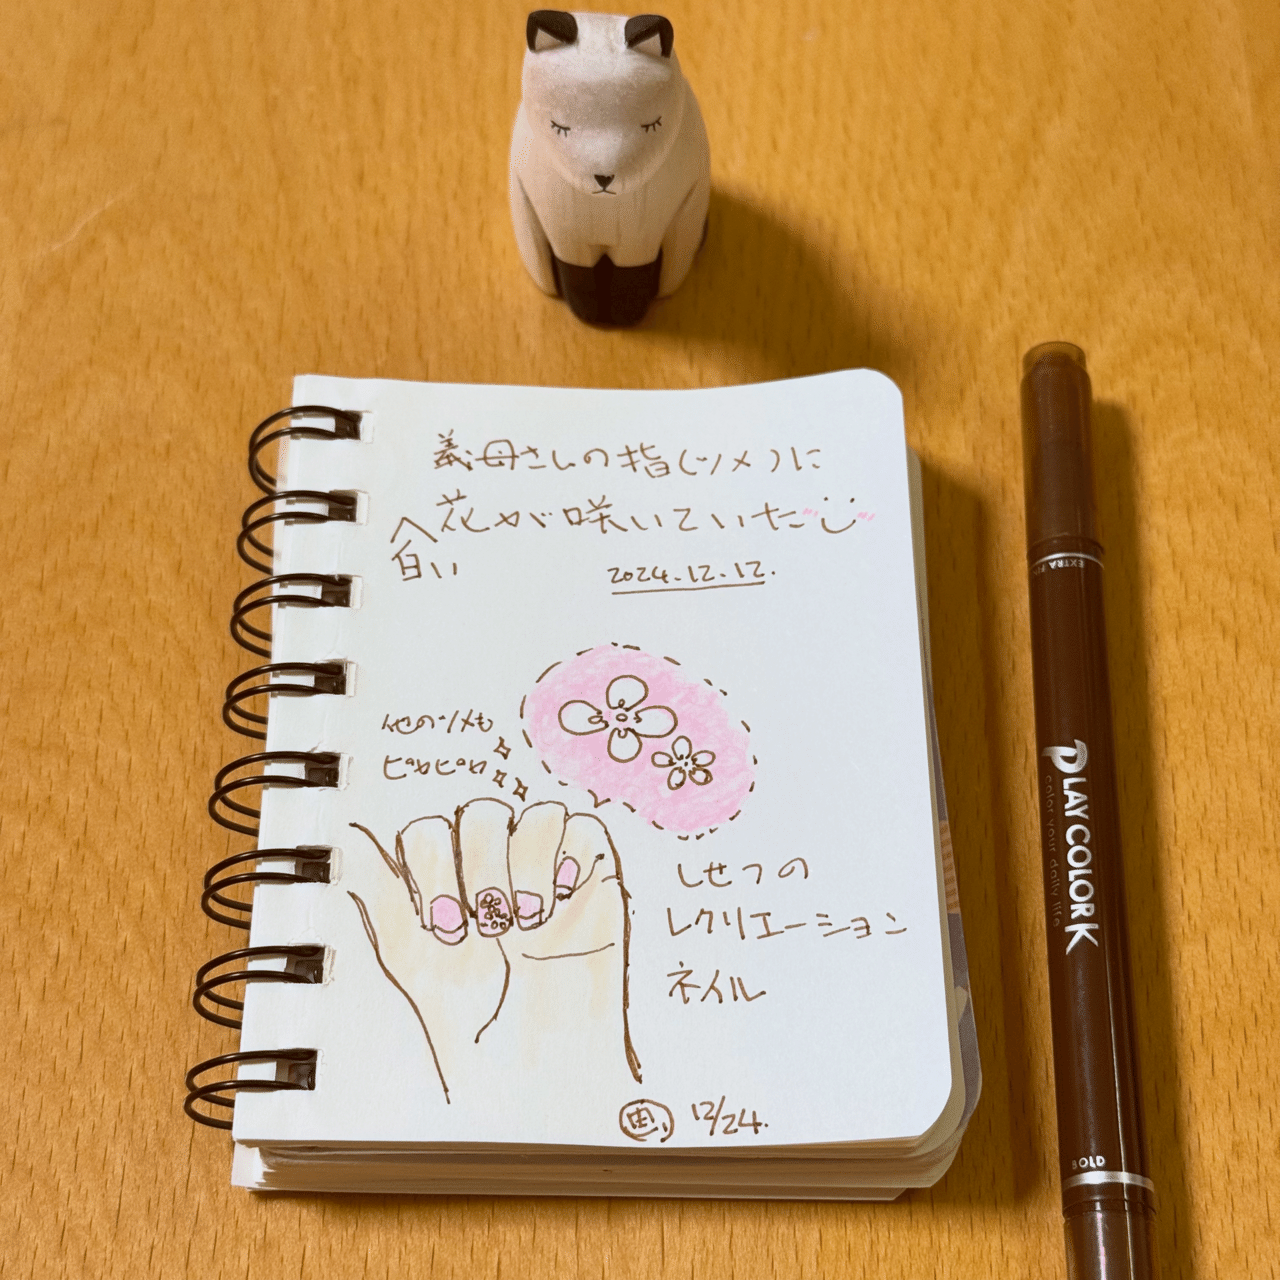 義母さんの指(ツメ)に
白い花が咲いていた
2024.12.12.
他のツメも
ピカピカ
しせつの
レクリエーション
ネイル
12/24.
PLAY COLOR K
color your daily life
BOLD